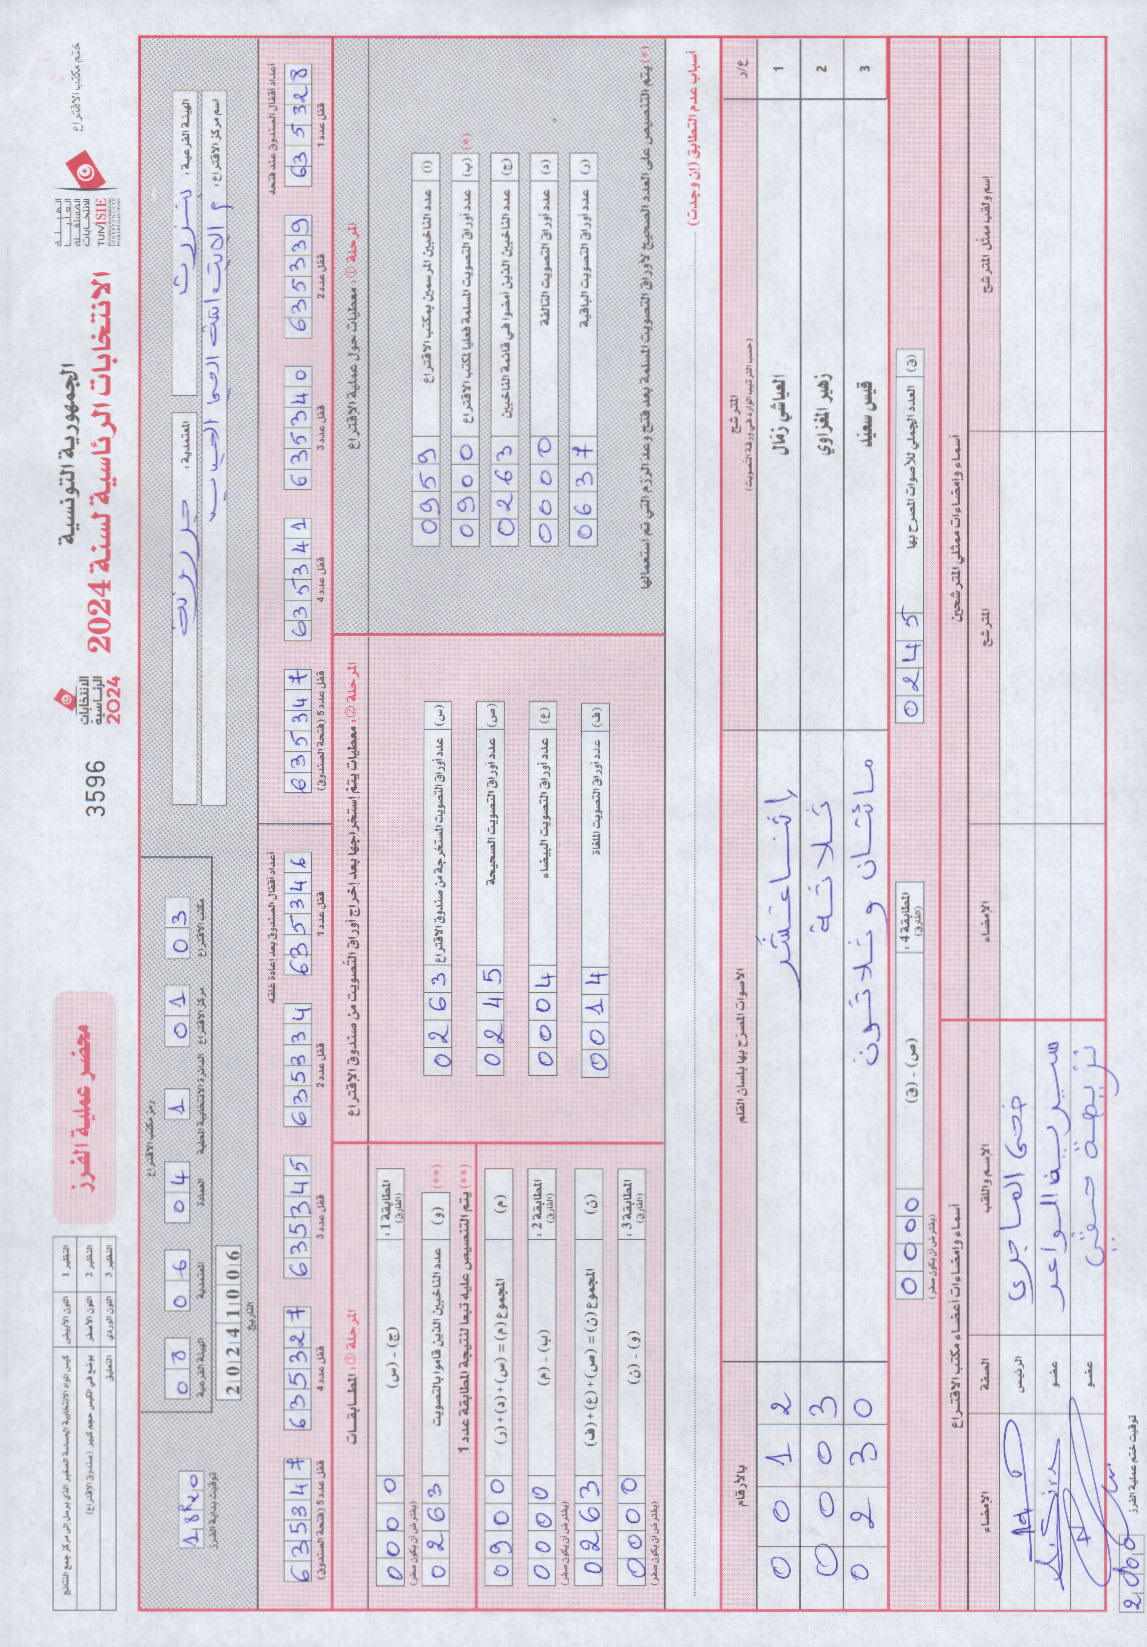 ختم مكتب الاقتراع
الهيئة العليا المستقلة للانتخابات
TUNISIE
الجمهورية التونسية
الانتخابات الرئاسية لسنة 2024
الانتخابات الرئاسية 2024
3596
محضر عملية الفرز
النظير 1 اللون الأبيض
النظير 2 اللون الأصفر
النظير 3 اللون الوردي التعليق
الهيئة الفرعية: بنزرت
المعتمدية: جرزونة
اسم مركز الاقتراع:
رمز مكتب الاقتراع
مكتب الاقتراع 03
مركز الاقتراع 01
الدائرة الانتخابية المحلية 1
العمادة 04
المعتمدية 06
الهيئة الفرعية
التاريخ 20241006
توقيت بداية الفرز
أعداد أقفال الصندوق عند فتحه
قفل عدد 1 635328
قفل عدد 2 635339
قفل عدد 3 635340
قفل عدد 4 635341
قفل عدد 5 (فتحة الصندوق) 635347
أعداد أقفال الصندوق بعد إعادة غلقه
قفل عدد 1 635346
قفل عدد 2 635334
قفل عدد 3 635345
قفل عدد 4 635327
قفل عدد 5 (فتحة الصندوق) 635347
المرحلة ①: معطيات حول عملية الاقتراع
(أ) عدد الناخبين المرسمين بمكتب الاقتراع 0959
(*) (ب) عدد أوراق التصويت المسلمة فعليا لمكتب الاقتراع 0900
(ج) عدد الناخبين الذين أمضوا في قائمة الناخبين 0263
(د) عدد أوراق التصويت التالفة 0000
(ر) عدد أوراق التصويت الباقية 0637
(*) يتم التنصيص على العدد الصحيح لأوراق التصويت المسلمة بعد فتح وعد الرزم التي تم استعمالها
المرحلة ②: معطيات يتم استخراجها بعد إخراج أوراق التصويت من صندوق الاقتراع
(س) عدد أوراق التصويت المستخرجة من صندوق الاقتراع 0263
(ص) عدد أوراق التصويت الصحيحة 0245
(ع) عدد أوراق التصويت البيضاء 0004
(ف) عدد أوراق التصويت الملغاة 0014
المرحلة ③: المطابقات
المطابقة 1: (الفارق) (ج) - (س) 0000 (يفترض أن يكون صفر)
(**) (و) عدد الناخبين الذين قاموا بالتصويت 0263
(**) يتم التنصيص عليه تبعا لنتيجة المطابقة عدد 1
(م) المجموع (م) = (س)+(د)+(ر) 0900
المطابقة 2: (الفارق) (ب) - (م) 0000 (يفترض أن يكون صفر)
(ن) المجموع (ن) = (ص)+(ع)+(ف) 0263
المطابقة 3: (الفارق) (و) - (ن) 0000 (يفترض أن يكون صفر)
أسباب عدم التطابق (إن وجدت)
ع/ر المترشح (حسب الترتيب الوارد في ورقة التصويت) الأصوات المصرح بها بلسان القلم بالأرقام
1 العياشي زمال إثنا عشر 0012
2 زهير المغزاوي ثلاثة 0003
3 قيس سعيد مائتان وثلاثون 0230
(ق) العدد الجملي للأصوات المصرح بها 0245
المطابقة 4: (الفارق) (ص) - (ق) 0000 (يفترض أن يكون صفر)
أسماء وإمضاءات ممثلي المترشحين
اسم ولقب ممثل المترشح المترشح الإمضاء
أسماء وإمضاءات أعضاء مكتب الاقتراع
الاسم واللقب الصفة الإمضاء
الماجري الرئيس
عضو
عضو
توقيت ختم عملية الفرز